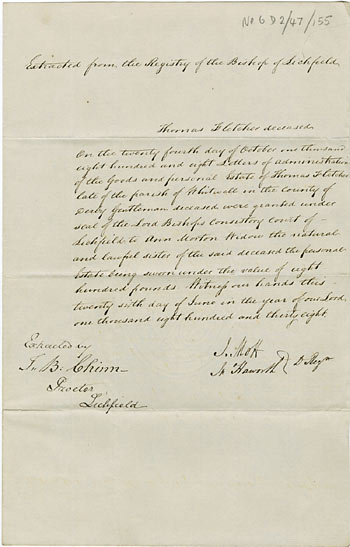 No 6 D2/47/155
Extracted from the Registry of the Bishop of Lichfield
Thomas Fletcher deceased
On the twenty fourth day of October one thousand
eight hundred and eight Letters of Administration
of the Goods and personal Estate of Thomas Fletcher
late of the parish of Whitwell in the County of
Derby Gentleman deceased were granted under
seal of the Lord Bishops Consistory Court of
Lichfield to Ann Morton Widow the natural
and lawful sister of the said deceased the personal
Estate being sworn under the value of eight
hundred pounds. Witness our hands this
twenty sixth day of June in the year of our Lord
one thousand eight hundred and thirty eight.
Extracted by
J. Mott
B. Chinn
Haworth D Regrs
Proctor
Lichfield